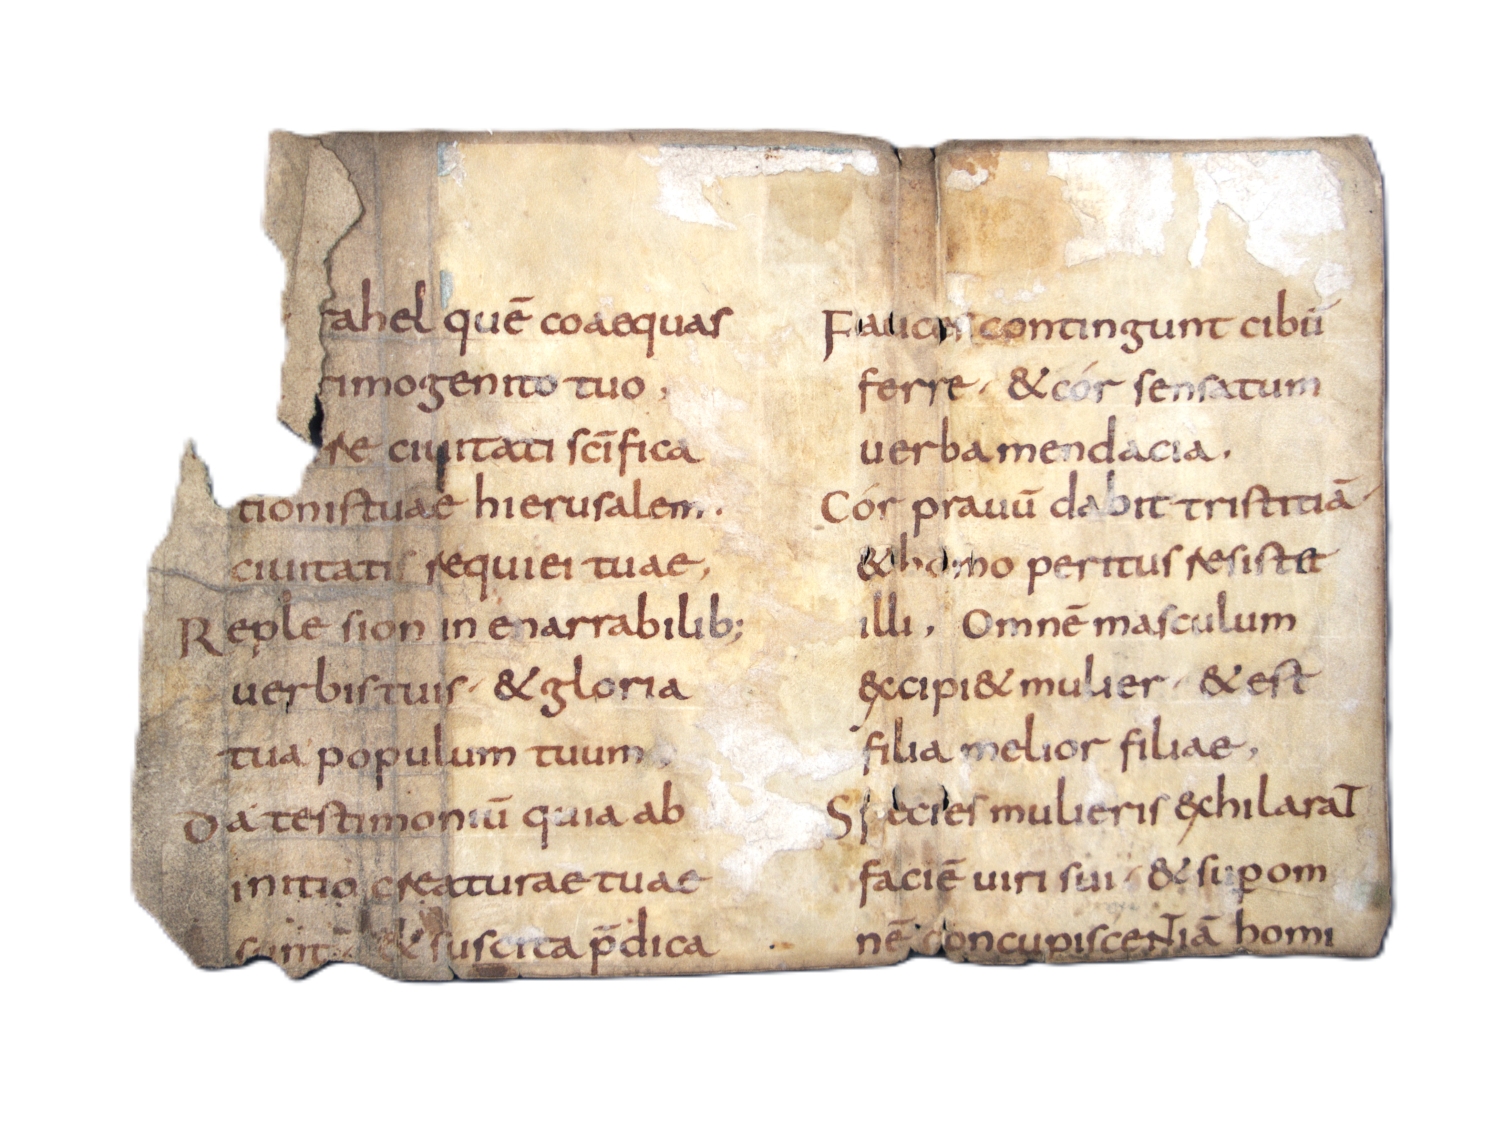 rahel quē coaequas
rimogenito tuo,
re ciuitati scīfica
tionis tuae hierusalem.
ciuitatis requiei tuae,
Reple sion in enarrabilib;
uerbis tuis. & gloria
tua populum tuum,
Da testimoniū quia ab
initio creaturae tuae
sunt. & suscita p̄dica
Fauces contingunt cibū
ferre. & cór sensatum
uerba mendacia.
Cór prauū dabit tristitiā.
& homo peritus resist&
illi, Omnē masculum
excipi& mulier. & est
filia melior filiae,
Species mulieris exhilarat
faciē uiri sui. & sup om
nē concupiscentiā homi